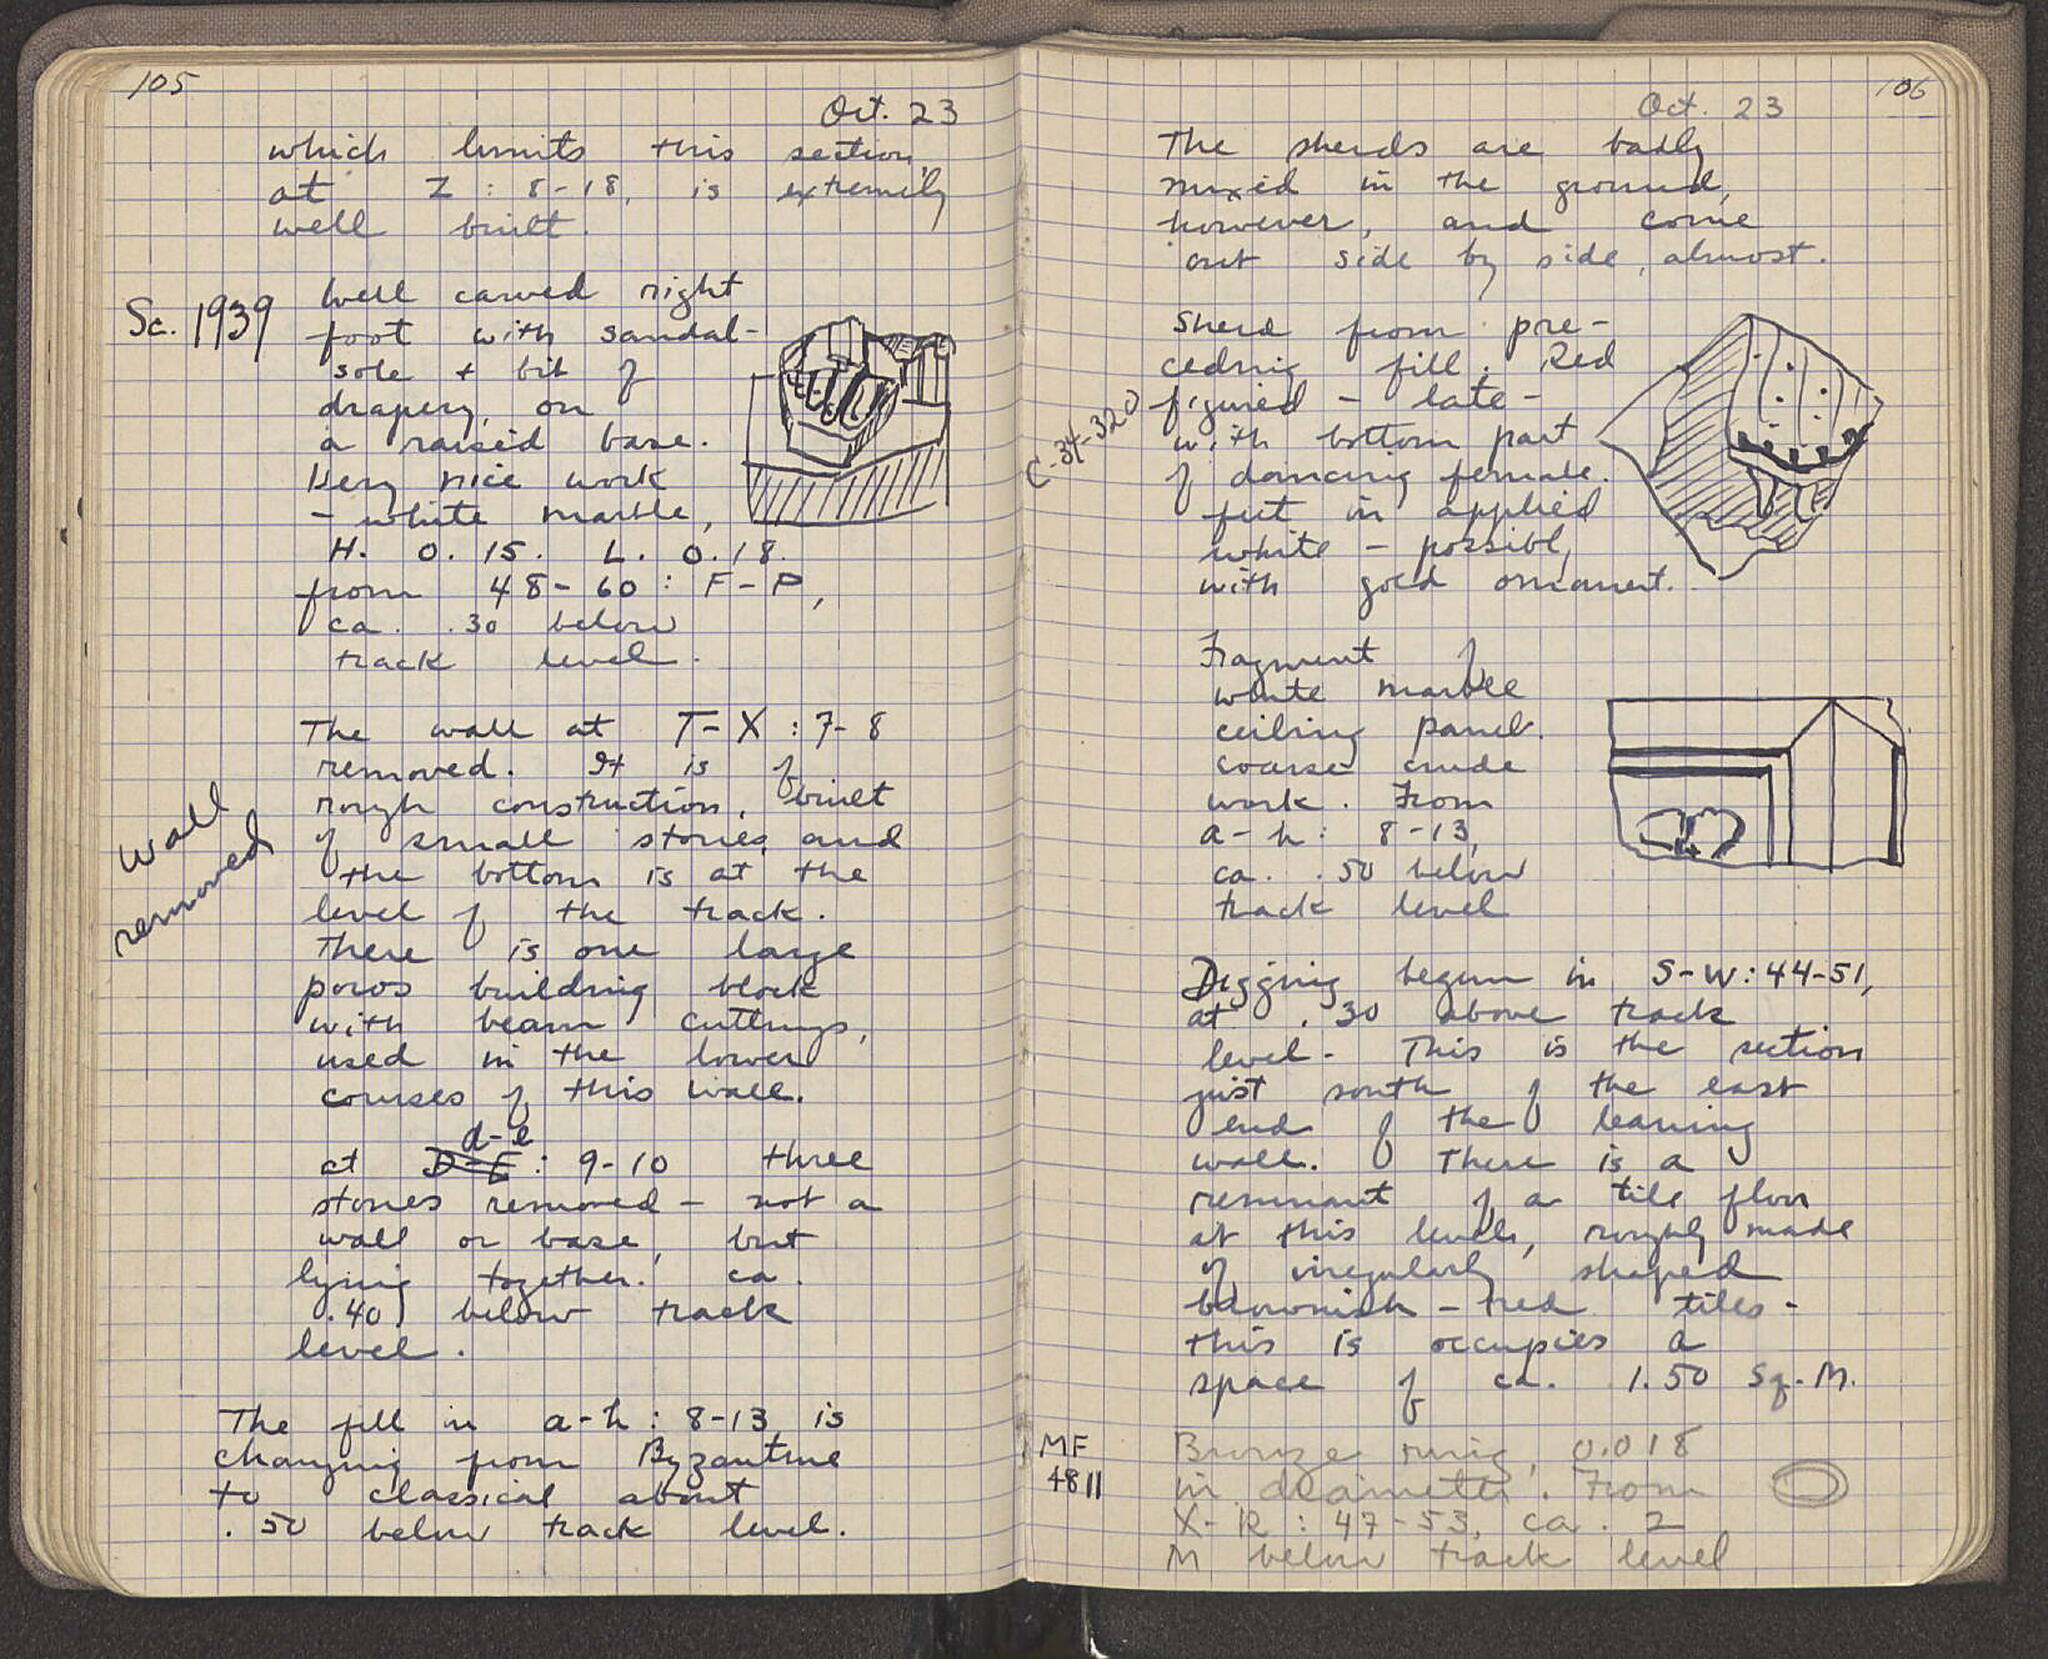 105
Oct. 23
which limits this section,
at Z : 8-18, is extremely
well built.
Sc. 1939
Well carved right
foot with sandal-
sole + bit of
drapery, on
a raised base.
Very nice work
- white marble,
H. 0.15. L. 0.18.
from 48-60 : F-P,
ca. .30 below
track level.
The wall at T-X : 7-8
removed. It is of
rough construction, built
of small stones and
the bottom is at the
level of the track.
There is one large
poros building block
with beam cuttings,
used in the lower
courses of this wall.
wall
removed
d-e
at D-E : 9-10 three
stones removed - not a
wall or base, but
lying together. ca.
.40 below track
level.
The fill in a-h : 8-13 is
changing from Byzantine
to classical about
.50 below track level.
106
Oct. 23
The sherds are badly
mixed in the ground,
however, and come
out side by side, almost.
C-34-320
Sherd from pre-
ceding fill. Red
figured - late -
with bottom part
of dancing female.
feet in applied
white - possibly
with gold ornament.
Fragment of
white marble
ceiling panel.
coarse crude
work. From
a-h : 8-13,
ca. .50 below
track level
Digging begun in S-W : 44-51,
at .30 above track
level. This is the section
just south of the east
end of the leaning
wall. There is a
remnant of a tile floor
at this level, roughly made
of irregularly shaped
brownish-red tiles -
this is occupies a
space of ca. 1.50 Sq. M.
MF
4811
Bronze ring, 0.018
in diameter. From
X-R : 47-53, ca. 2
M below track level